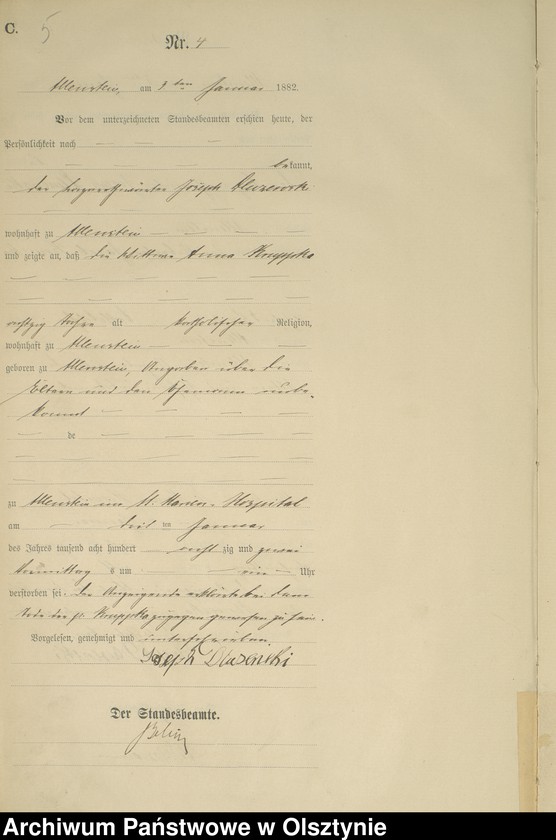 C. 5
Nr. 4
Allenstein, am 3 ten Januar 1882.
Vor dem unterzeichneten Standesbeamten erschien heute, der
Persönlichkeit nach
bekannt,
der Joseph
wohnhaft zu Allenstein
und zeigte an, daß die Wittwe Anna Kruppka
achtzig Jahre alt katholischer Religion,
wohnhaft zu Allenstein
geboren zu Allenstein, Angaben über die
Eltern und den Ehemann unbe-
kannt
de
zu Allenstein im St. Marien-Hospital
am drit ten Januar
des Jahres tausend acht hundert acht zig und zwei
Vormittag s um ein Uhr
verstorben sei. Der Anzeigende erklärte bei dem
Tode der p. Kruppka zugegen gewesen zu sein.
Vorgelesen, genehmigt und unterschrieben
Joseph
Der Standesbeamte.
Archiwum Państwowe w Olsztynie